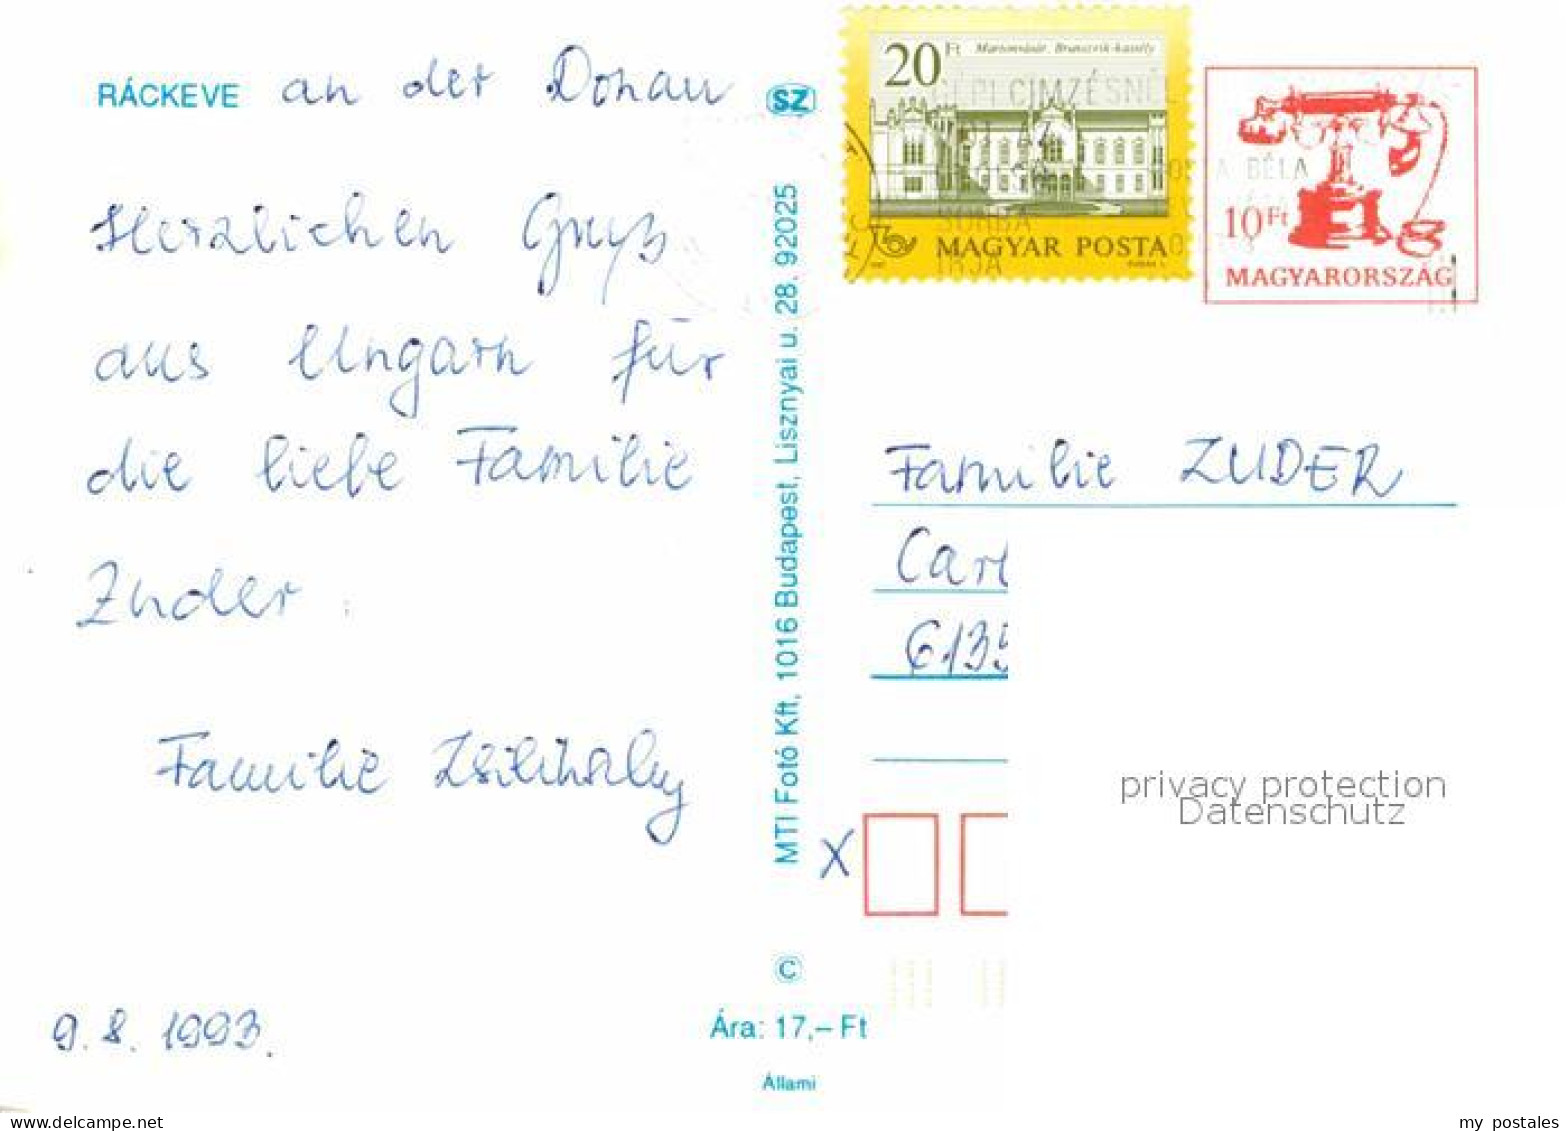 RÁCKEVE an der Donau
Herzlichen Gruß
aus Ungarn für
die liebe Familie
Zuder.
Familie
9. 8. 1993.
SZ
MTI Fotó Kft, 1016 Budapest, Lisznyai u. 28. 92025
C
Ára: 17,– Ft
Állami
20 Ft Martonvásár, Brunszvik-kastély
MAGYAR POSTA
GÉPI CIMZÉSNÉL
SORBA
IRJA
POSTA BÉLA
10 Ft
MAGYARORSZÁG
Familie ZUDER
Carl
6135
X
privacy protection
Datenschutz
my postales